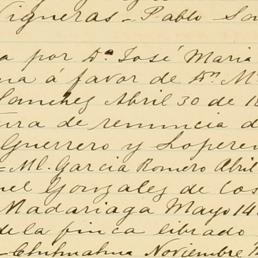 Vigueras - Pablo Son
a por Dn. José Maria
na á favor de Dn. M
Sanchez Abril 30 de 18
tura de renuncia d
Guerrero y Loperen
= Ml. Garcia Romero Abril
uel Gonzalez de Cos
Madariaga Mayo 14
de la finca librado
Chihuahua Noviembre 1